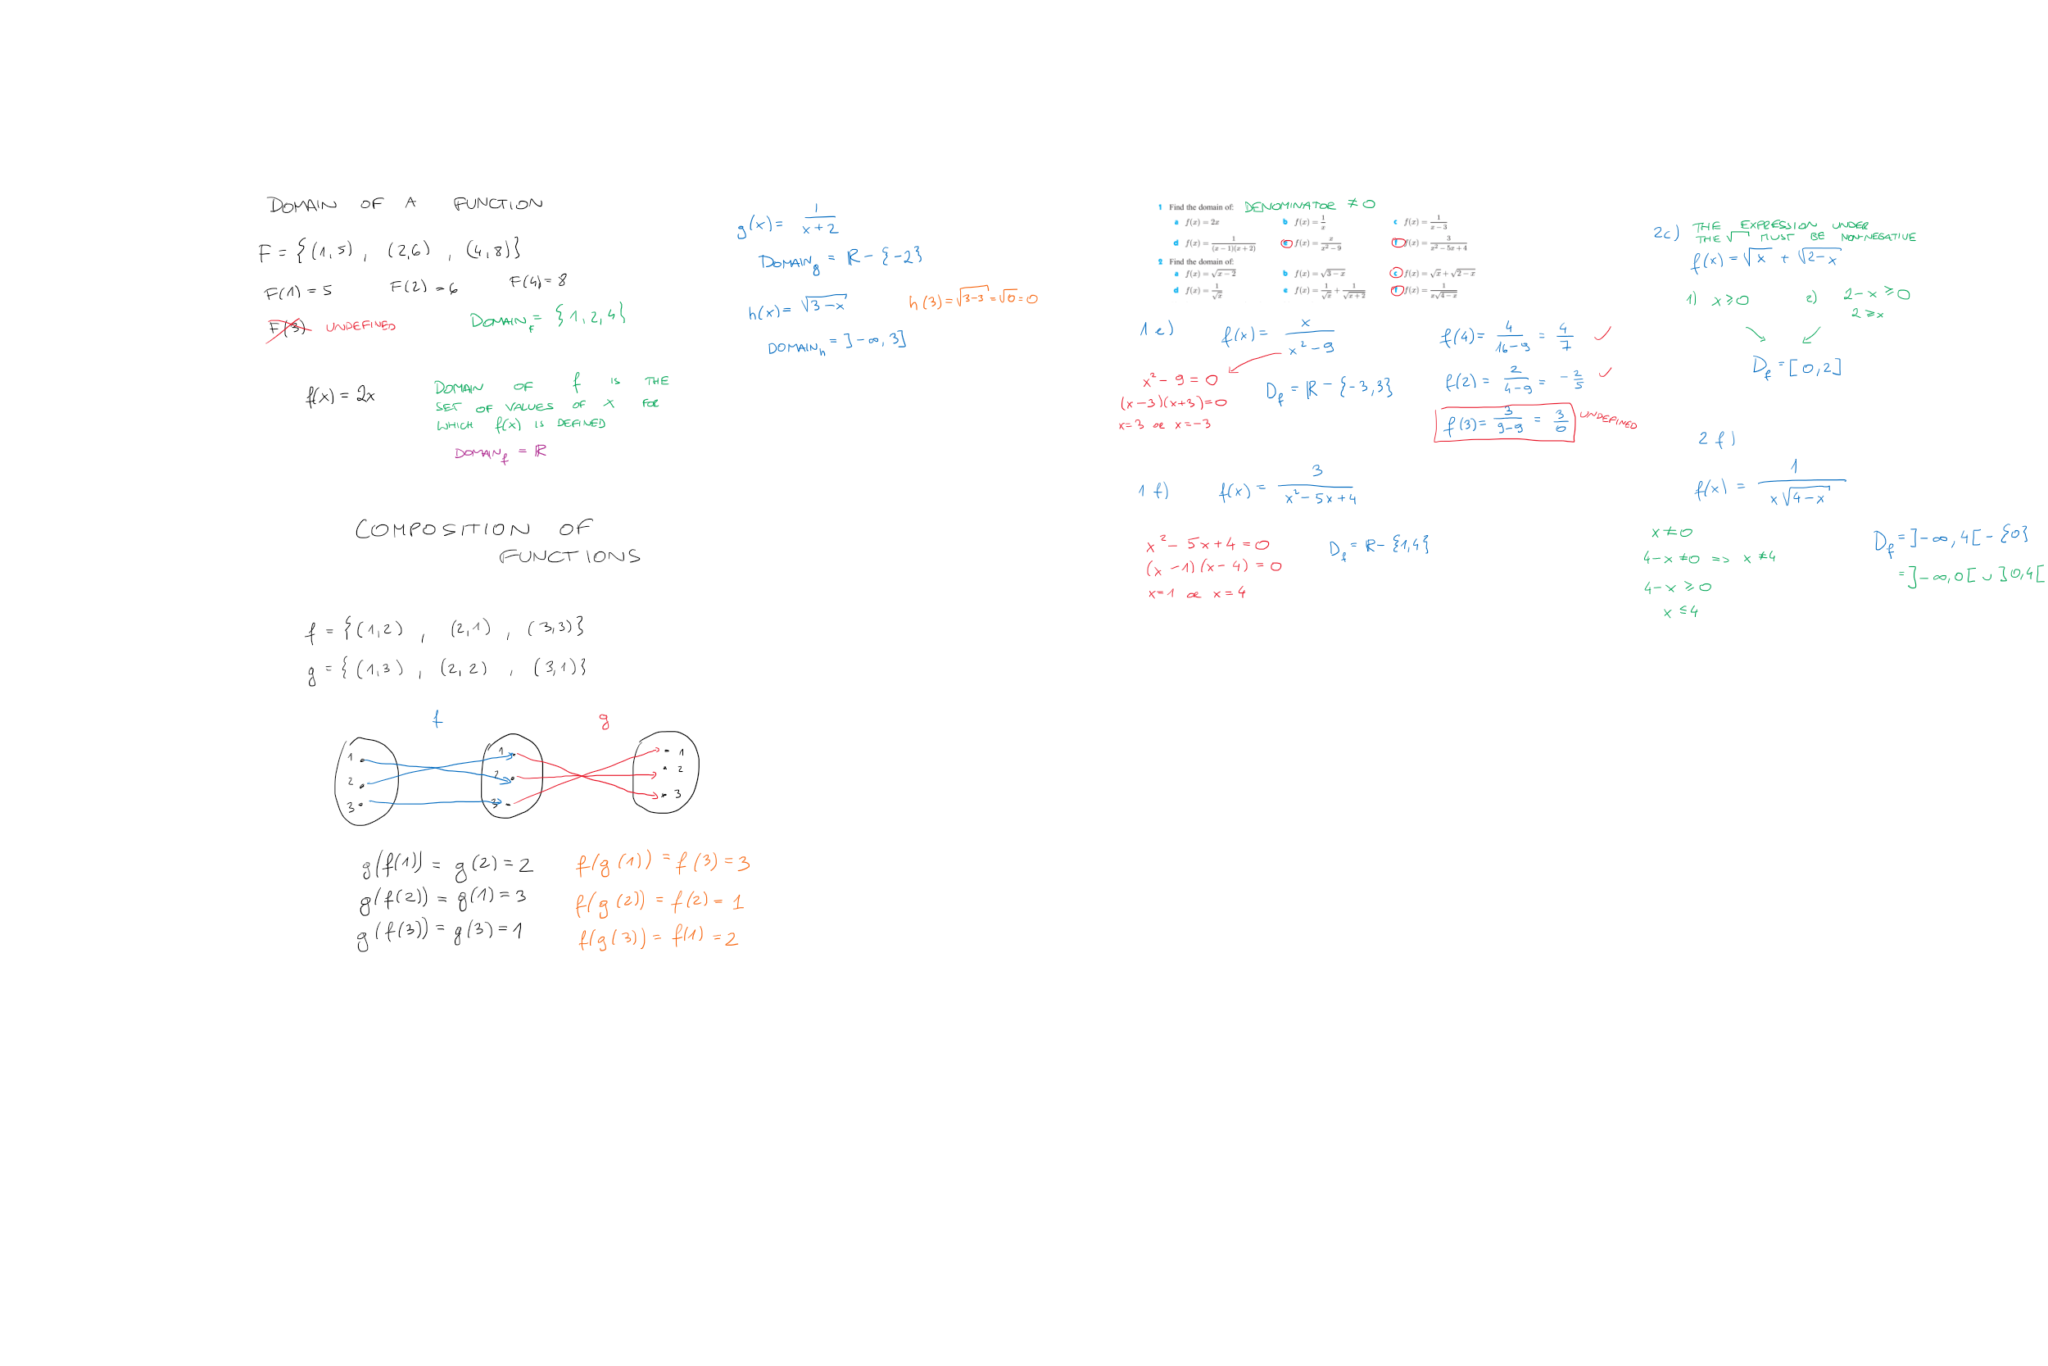 DOMAIN OF A FUNCTION
F = {(1,5) , (2,6) , (4,8)}
F(1) = 5 F(2) = 6 F(4) = 8
F(3) UNDEFINED DOMAIN_F = {1,2,4}
f(x) = 2x
DOMAIN OF f IS THE
SET OF VALUES OF X FOR
WHICH f(x) IS DEFINED
DOMAIN_f = ℝ
g(x) = 1/(x+2)
DOMAIN_g = ℝ - {-2}
h(x) = √(3-x) h(3) = √(3-3) = √0 = 0
DOMAIN_h = ]-∞, 3]
COMPOSITION OF
FUNCTIONS
f = {(1,2) , (2,1) , (3,3)}
g = {(1,3) , (2,2) , (3,1)}
f g
1 1 1
2 2 2
3 3 3
g(f(1)) = g(2) = 2 f(g(1)) = f(3) = 3
g(f(2)) = g(1) = 3 f(g(2)) = f(2) = 1
g(f(3)) = g(3) = 1 f(g(3)) = f(1) = 2
1 Find the domain of: DENOMINATOR ≠ 0
a f(x) = 2x b f(x) = 1/x c f(x) = 1/(x-3)
d f(x) = 1/((x-1)(x+2)) e f(x) = x/(x²-9) f f(x) = 3/(x²-5x+4)
2 Find the domain of:
a f(x) = √(x-2) b f(x) = √(3-x) c f(x) = √x + √(2-x)
d f(x) = 1/√x e f(x) = 1/√x + 1/√(x+2) f f(x) = 1/(x√(4-x))
1 e) f(x) = x/(x²-9)
x² - 9 = 0
(x-3)(x+3) = 0
x = 3 or x = -3
D_f = ℝ - {-3,3}
f(4) = 4/(16-9) = 4/7 ✓
f(2) = 2/(4-9) = -2/5 ✓
f(3) = 3/(9-9) = 3/0 UNDEFINED
1 f) f(x) = 3/(x²-5x+4)
x² - 5x + 4 = 0
(x-1)(x-4) = 0
x = 1 or x = 4
D_f = ℝ - {1,4}
2c) THE EXPRESSION UNDER
THE √ MUST BE NON-NEGATIVE
f(x) = √x + √(2-x)
1) x ≥ 0 2) 2-x ≥ 0
2 ≥ x
D_f = [0,2]
2 f)
f(x) = 1/(x√(4-x))
x ≠ 0
4-x ≠ 0 => x ≠ 4
4-x ≥ 0
x ≤ 4
D_f = ]-∞, 4[ - {0}
= ]-∞,0[ ∪ ]0,4[